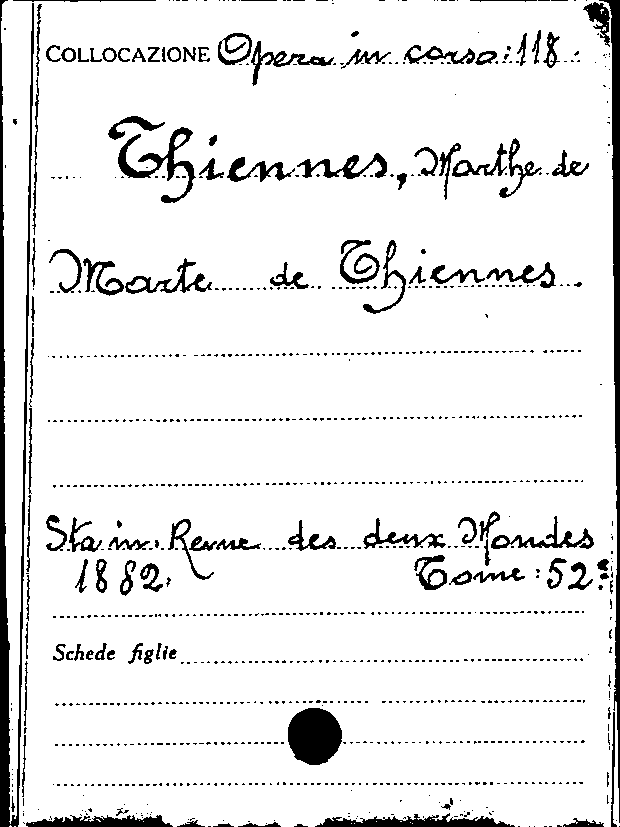 COLLOCAZIONE Opera in corso: 118.
Thiennes, Marthe de
Marte de Thiennes.
Sta in: Revue des deux Mondes
1882. Tome: 52º
Schede figlie